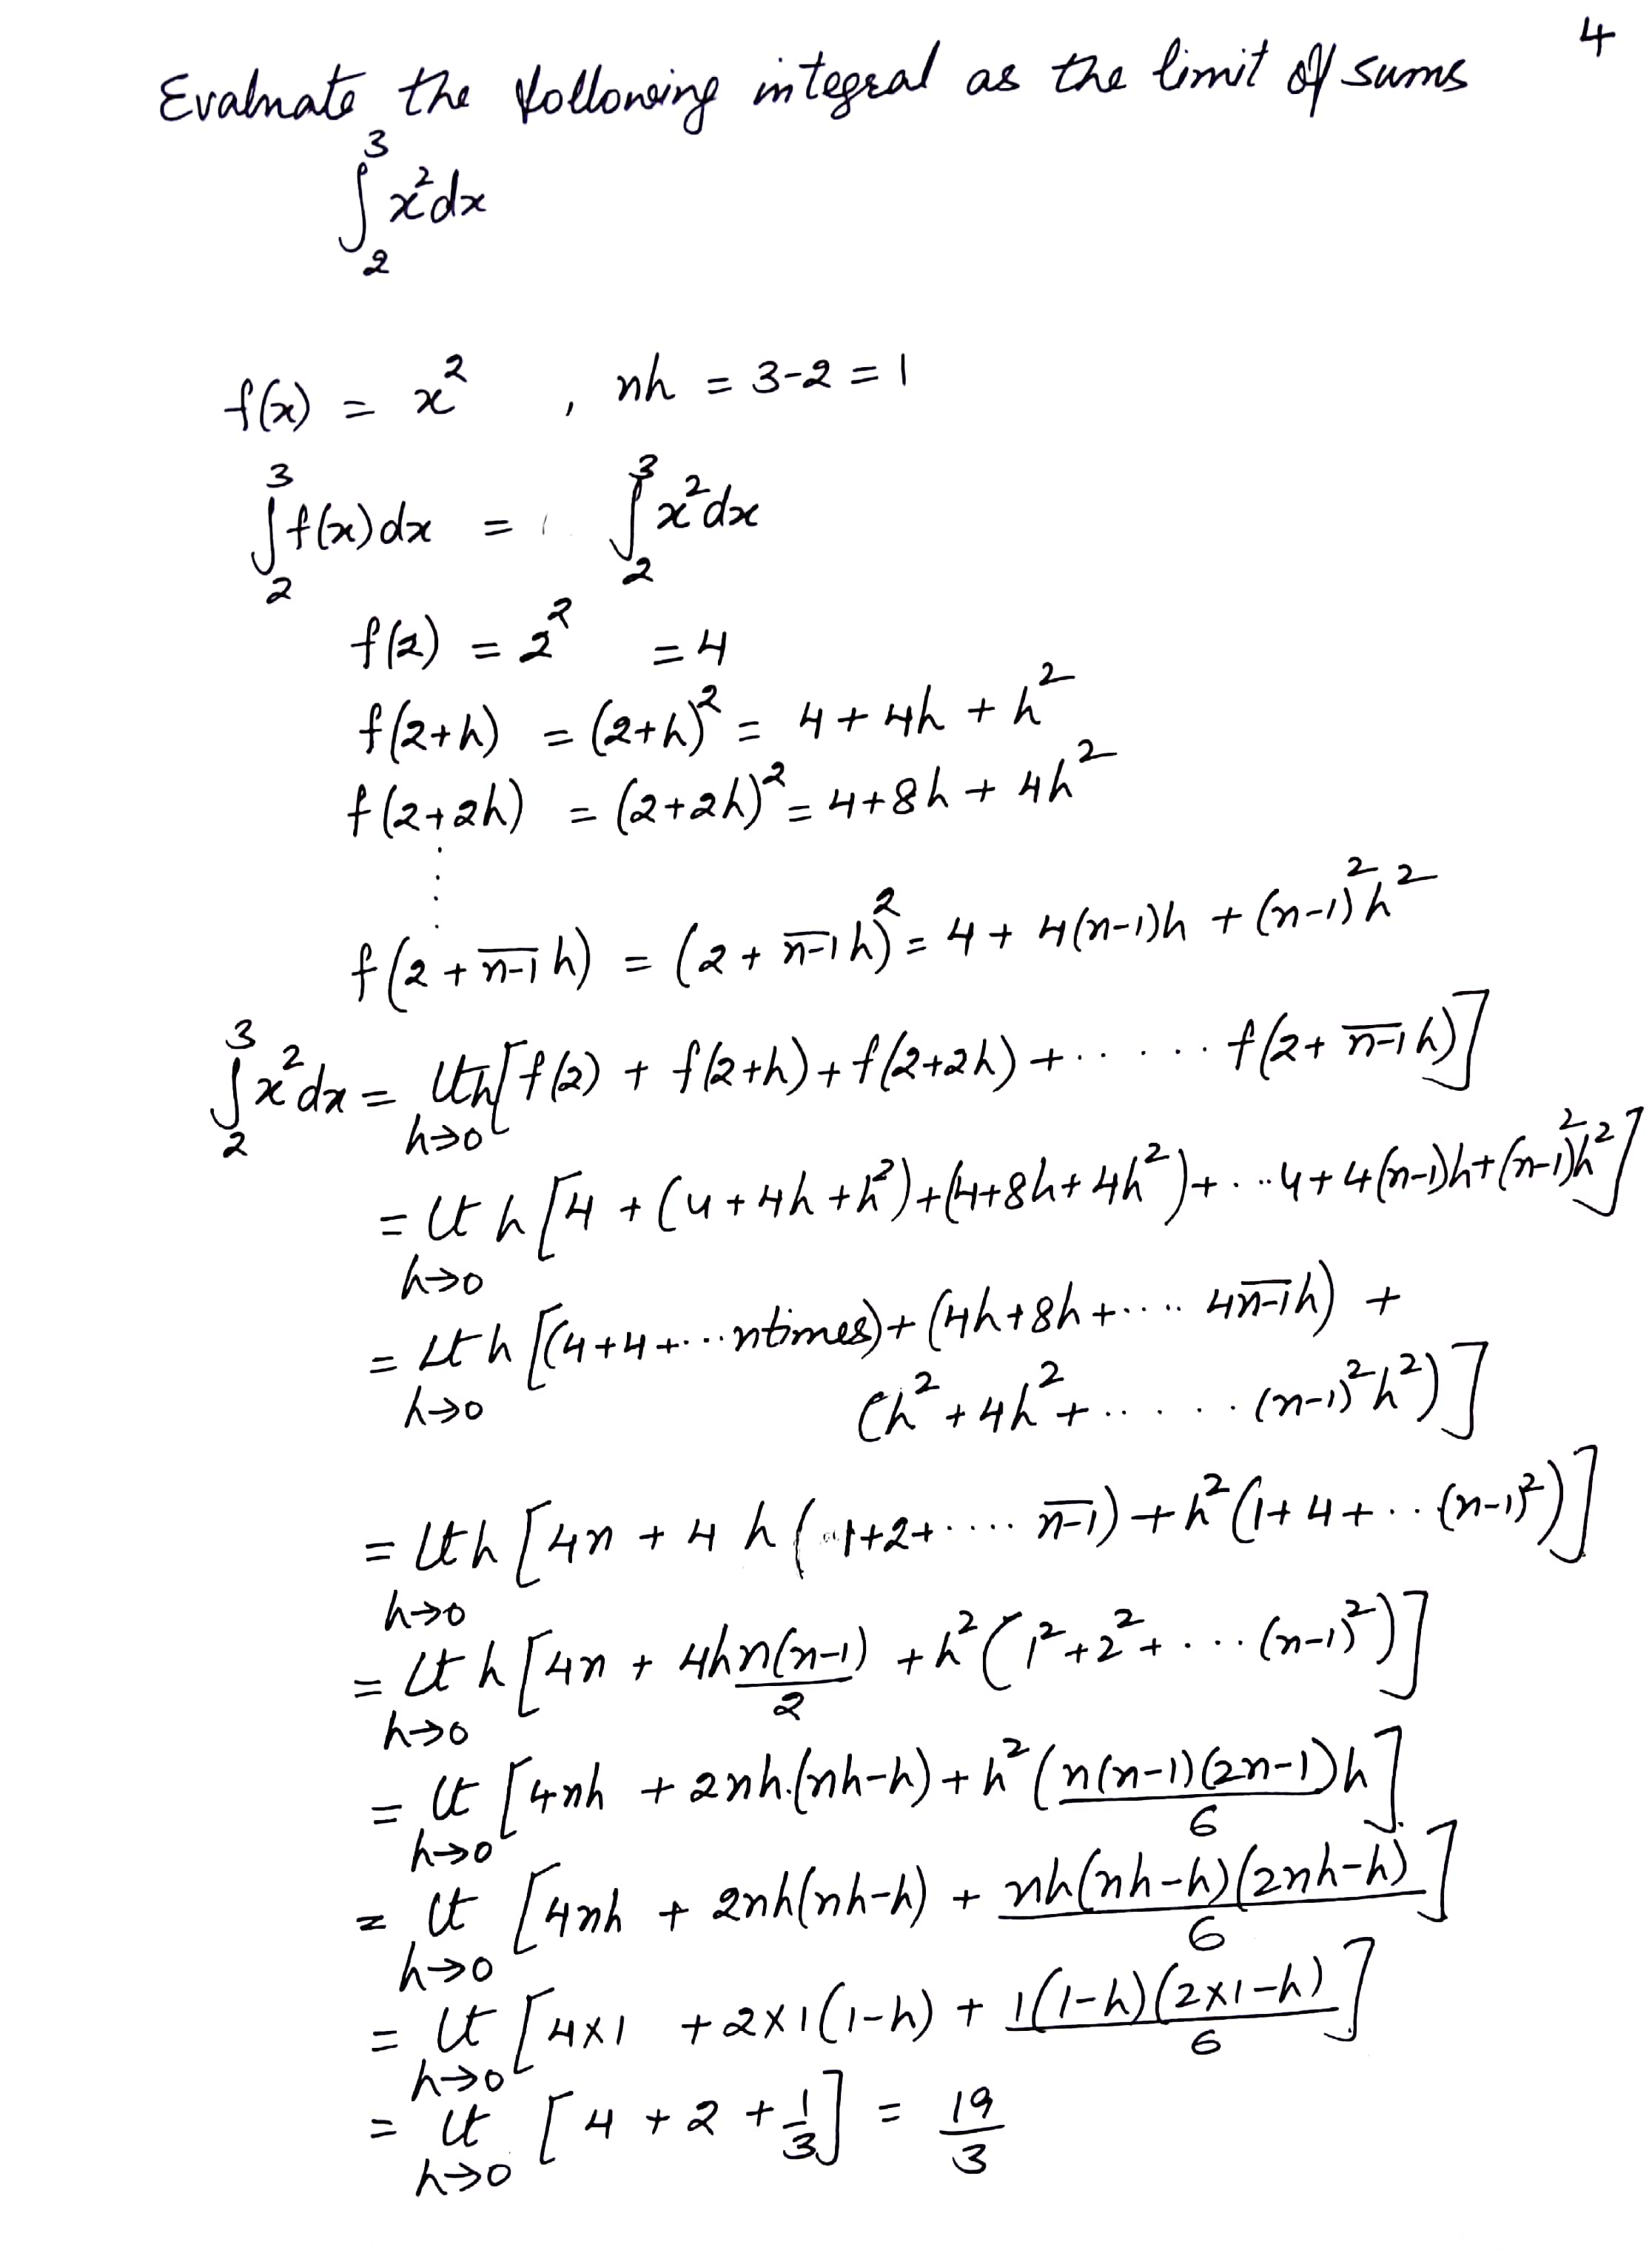 4
Evaluate the following integral as the limit of sums
∫₂³ x² dx
f(x) = x² , nh = 3-2 = 1
∫₂³ f(x) dx = ∫₂³ x² dx
f(2) = 2² = 4
f(2+h) = (2+h)² = 4 + 4h + h²
f(2+2h) = (2+2h)² = 4+8h + 4h²
⋮
f(2 + n̅-̅1̅ h) = (2 + n̅-̅1̅ h)² = 4 + 4(n-1)h + (n-1)² h²
∫₂³ x² dx = lt h→0 h[f(2) + f(2+h) + f(2+2h) + ...... f(2+ n̅-̅1̅ h)]
= lt h→0 h [4 + (4 + 4h + h²) + (4+8h+ 4h²) + ... 4 + 4(n-1)h + (n-1)² h²]
= Lt h→0 h [(4+4+... n times) + (4h+8h+..... 4n̅-̅1̅h) +
(h² + 4h² + ..... (n-1)² h²)]
= lt h→0 h [4n + 4 h (1+2+.... n̅-̅1̅) + h² (1+ 4+ .. (n-1)²)]
= lt h→0 h [4n + 4h n(n-1)/2 + h² (1² + 2² + .... (n-1)²)]
= lt h→0 [4nh + 2nh.(nh-h) + h² (n(n-1)(2n-1)/6 h]
= lt h→0 [4nh + 2nh(nh-h) + nh(nh-h)(2nh-h)/6]
= lt h→0 [4×1 + 2×1(1-h) + 1(1-h)(2×1-h)/6]
= lt h→0 [4 + 2 + 1/3] = 19/3